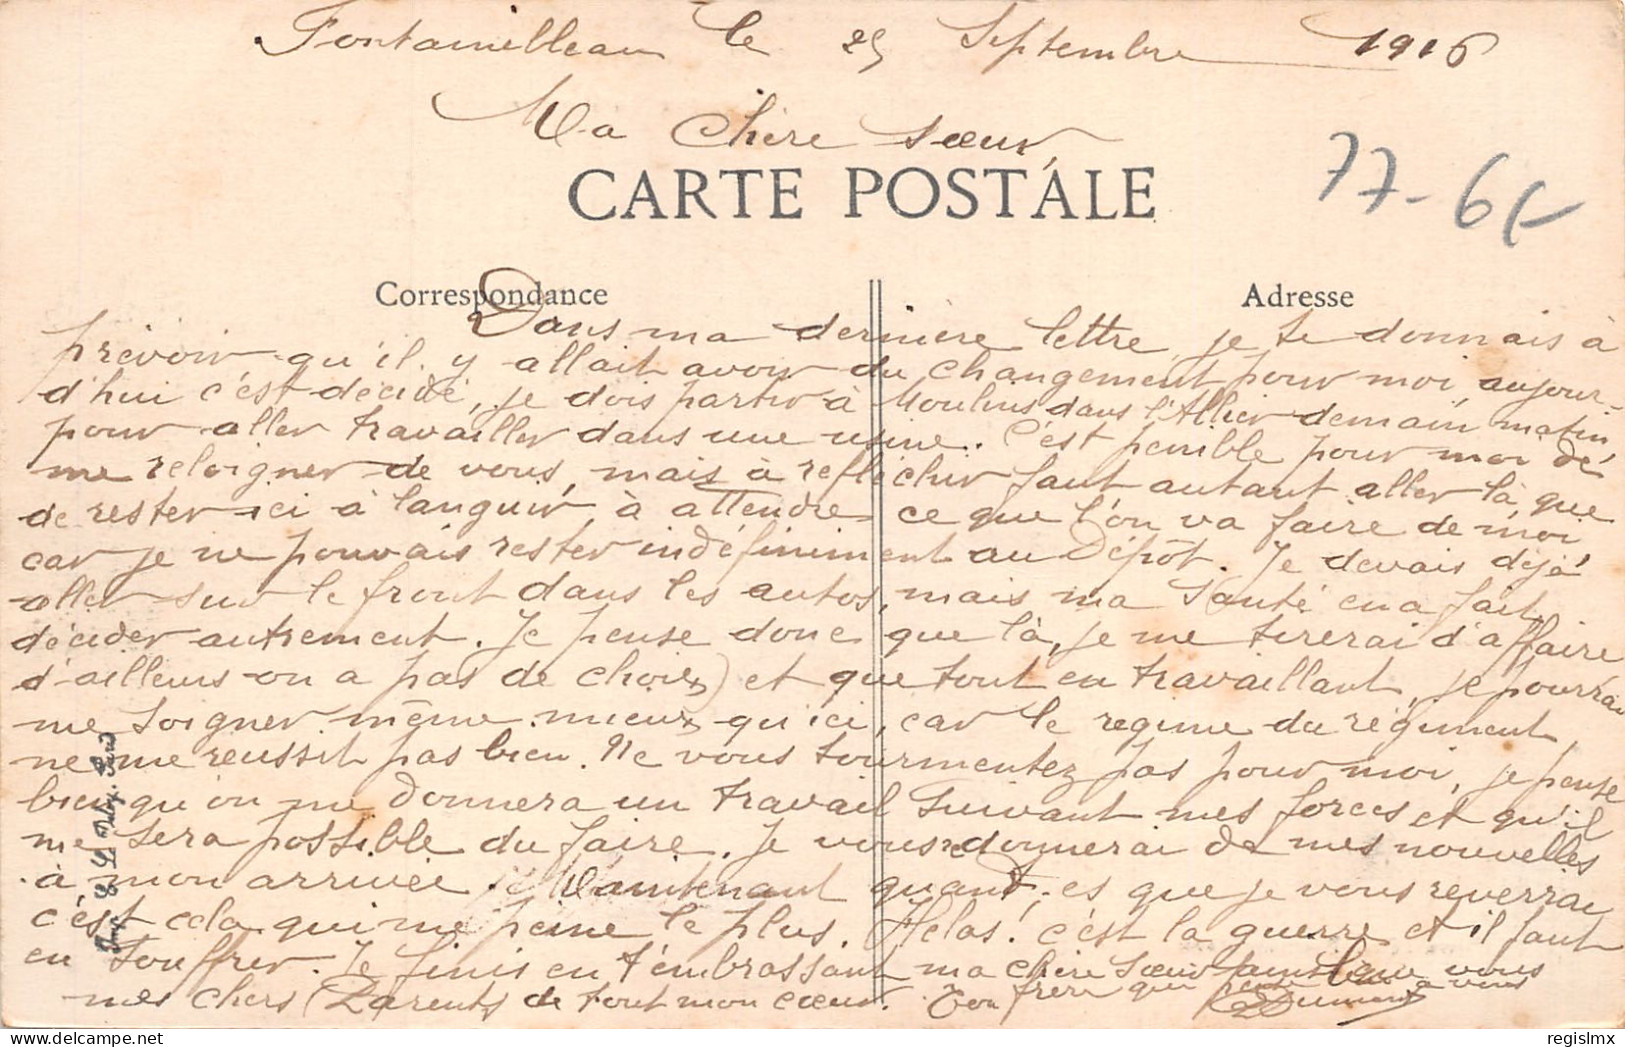 Fontainebleau le 25 Septembre 1916
Ma chère sœur,
77-6
CARTE POSTALE
Correspondance
Adresse
Dans ma dernière lettre je te donnais à
prévoir qu'il y allait avoir du changement pour moi, aujour-
d'hui c'est décidé, je dois partir à Moulins dans l'Allier demain matin
pour aller travailler dans une usine. C'est penible pour moi de
me reloigner de vous, mais à refléchir faut autant aller là, que
de rester ici à languir, à attendre ce que l'on va faire de moi
car je ne pouvais rester indéfiniment au Dépôt. Je devais déjà
aller sur le front dans les autos, mais ma Santé en a fait
décider autrement. Je pense donc que là, je me tirerai d'affaire
d'ailleurs on a pas de choix) et que tout en travaillant, je pourrai
me soigner même mieux qu'ici, car le regime du régiment
ne me reussit pas bien. Ne vous tourmentez pas pour moi, je pense
bien qu'on me donnera un travail suivant mes forces et qu'il
me sera possible du faire. Je vous donnerai de mes nouvelles
à mon arrivée. Maintenant quant, es que je vous reverrai
c'est cela qui me peine le plus. Helas! c'est la guerre et il faut
en souffrir. Je finis en t'embrassant ma chère sœur que vous
mes chers Parents de tout mon cœur. Ton frère qui pense à vous
Imp.
regislmx